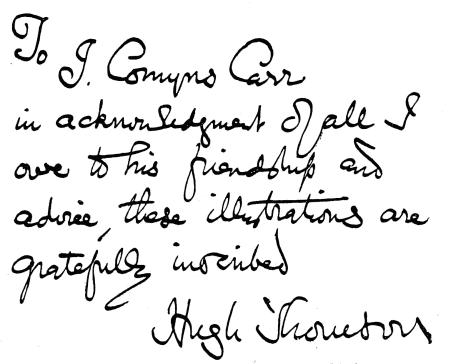 To
J. Comyns Carr
in acknowledgment of all I
owe to his friendship and
advice, these illustrations are
gratefully inscribed
Hugh Thomson